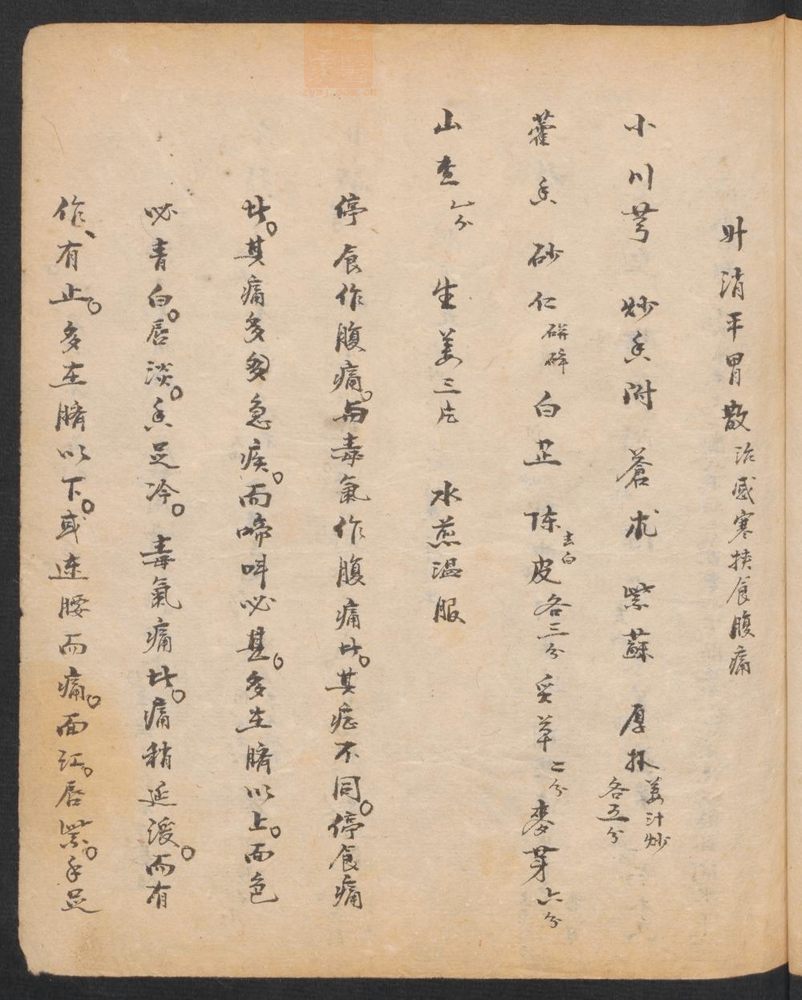 升消平胃散 治感寒挾食腹痛
小川芎 炒香附 蒼朮 紫蘇 厚朴 姜汁炒 各五分
藿香 砂仁 研碎 白芷 陈皮 去白 各三分 炙草 二分 麥芽 六分
山查 八分 生姜三片 水煎温服
停食作腹痛。与毒氣作腹痛者。其症不同。停食痛
者。其痛多急疾。而啼叫必甚。多在臍以上。面色
必青白。唇淡。手足冷。毒氣痛者。痛稍延緩。而有
作、有止。多在臍以下。或連腰而痛。面红。唇紫。手足